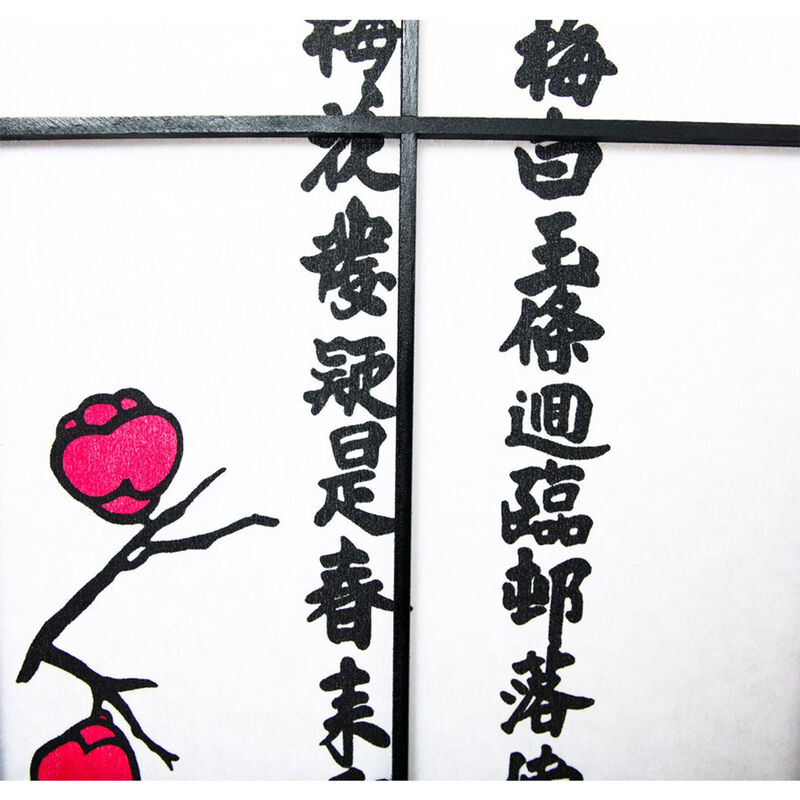 梅白玉條迴臨邨落
梅花發疑是春来